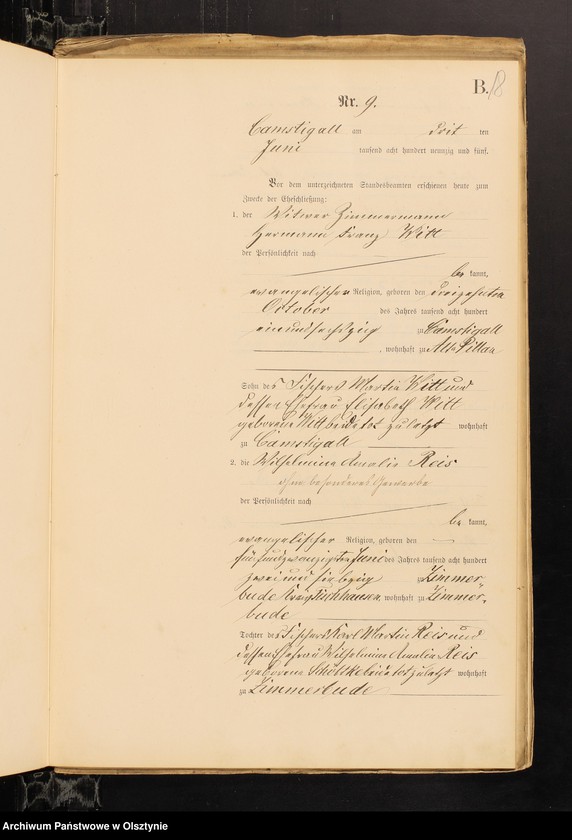 B. 18
Nr. 9.
Camstigall am drit ten
Juni tausend acht hundert neunzig und fünf.
Vor dem unterzeichneten Standesbeamten erschienen heute zum
Zwecke der Eheschließung:
1. der Witwer Zimmermann
Hermann Franz Witt
der Persönlichkeit nach
be kannt,
evangelischer Religion, geboren den dreizehnten
October des Jahres tausend acht hundert
einundsechszig zu Camstigall
, wohnhaft zu Alt Pillau
Sohn des Fischers Martin Witt und
dessen Ehefrau Elisabeth Witt
geborene Witt beide tot zuletzt wohnhaft
zu Camstigall
2. die Wilhelmine Amalie Reis
ohne besonderes Gewerbe
der Persönlichkeit nach
be kannt,
evangelischer Religion, geboren den
fünfundzwanzigsten Juni des Jahres tausend acht hundert
zweiundsiebzig zu Zimmer-
bude Kreis Fischhausen, wohnhaft zu Zimmer-
bude
Tochter des Fischers Karl Martin Reis und
dessen Ehefrau Wilhelmine Amalie Reis
geborene beide tot zuletzt wohnhaft
zu Zimmerbude
Archiwum Państwowe w Olsztynie